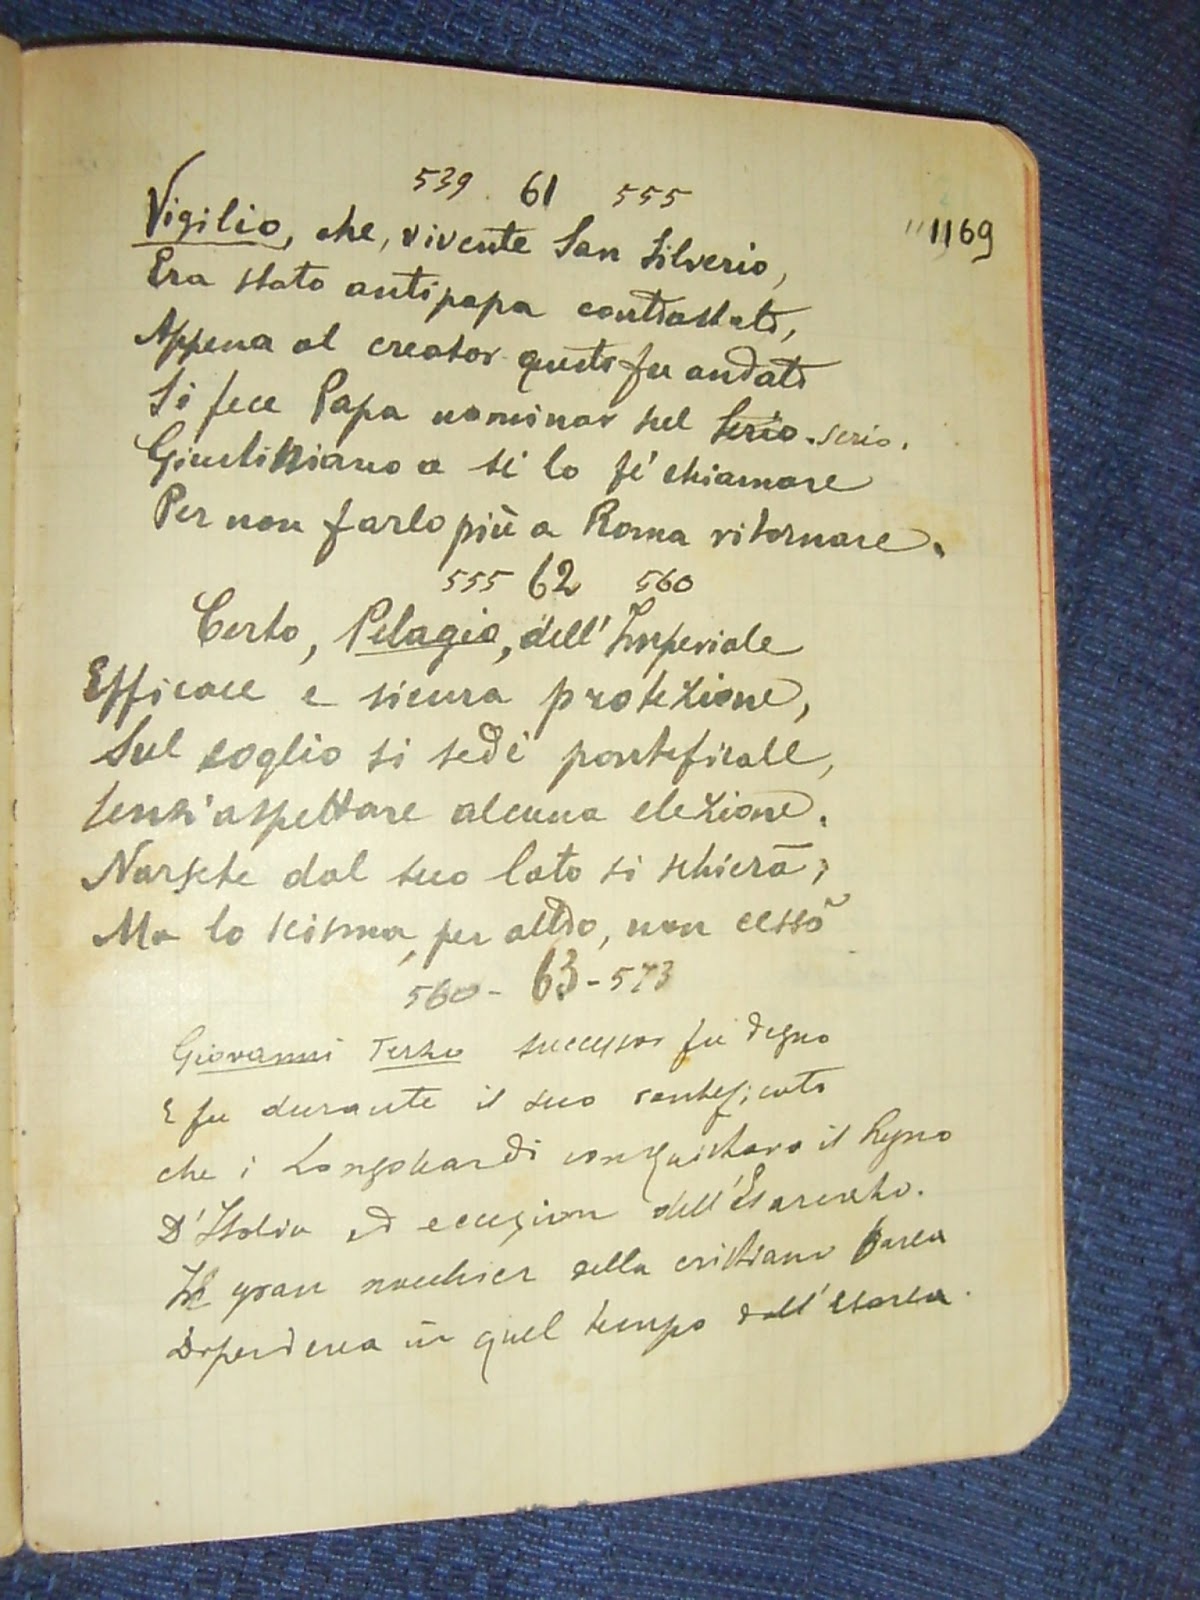 539 61 555
1169
Vigilio, che, vivente San Silverio,
Era stato antipapa contrastato,
Appena al creator questo fu andato
Si fece Papa nominar sul serio. serio.
Giustiniano a sé lo fé chiamare
Per non farlo più a Roma ritornare.
555 62 560
Certo, Pelagio, dell'Imperiale
Efficace e sicura protezione,
Sul soglio si sedé pontificale,
Senz'aspettare alcuna elezione.
Narsete dal suo lato si schierò;
Ma lo scisma, per altro, non cessò
560 - 63 - 573
Giovanni Terzo successor fu degno
E fu durante il suo pontificato
che i Longobardi conquistaro il Regno
D'Italia ad eccezion dell'Esarcato.
Il gran nocchier della cristiana barca
Dipendeva in quel tempo dall'esarca.